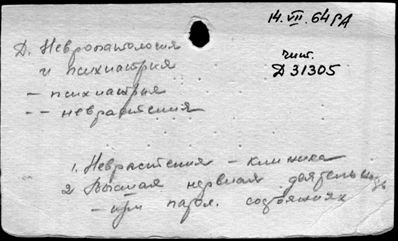 14.VII.64 РА
чит.
Д 31305
Д. Невропатология
и психиатрия
-- психиатрия
-- неврастения
1. Неврастения - клиника
2 Высшая нервная деятельность
- при патол. состояниях